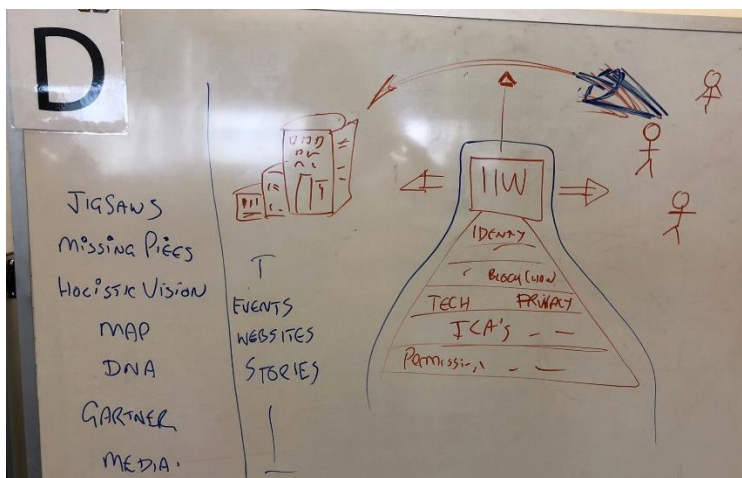 D
JIGSAWS
MISSING PIECES
HOLISTIC VISION
MAP
DNA
GARTNER
MEDIA.
EVENTS
WEBSITES
STORIES
IIW
IDENTITY
BLOCKCHAIN
TECH PRIVACY
ICA's - -
PERMISSION - -